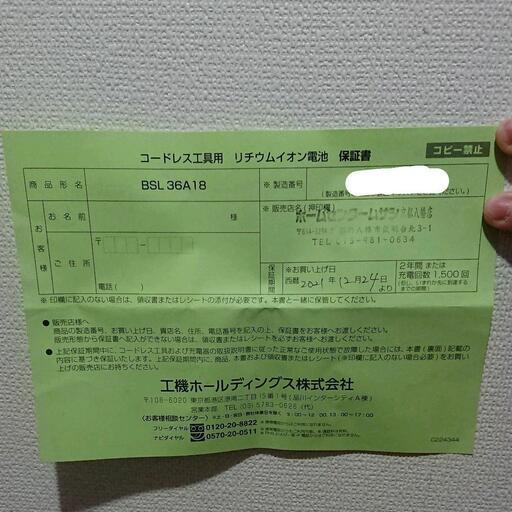 コードレス工具用 リチウムイオン電池 保証書
コピー禁止
商品形名
BSL 36A18
※ 製造番号
お客様
お名前
様
ご住所
〒
電話(
)
※ 販売店名(押印欄)
ホームセンタームサシ京都八幡店
TEL 075-981-0634
保証期間
※お買い上げ日
西暦 2021年 12月 24日 より
2年間 または
充電回数 1,500回
(但し、いずれか先に到達するまでの期間)
※ 印欄に記入のない場合は、領収書またはレシートの添付が必要です。本書と一緒に保管してください。
● 販売店様へ
商品の製造番号、お買い上げ日、貴店名、住所、電話番号を記入の上、保証書をお客様へお渡しください。
販売形態から保証書へ記入ができない場合は、領収書またはレシートを必ずお客様へお渡しください。
● 上記保証期間中に、コードレス工具および充電器の取扱説明書に従った正常なご使用状態で故障した場合には、本書(裏面)記載の
内容に基づき保証いたします。商品、本書および領収書またはレシート(※印欄に記入がない場合必要)をお買い上
げの販売店にお持ちください。
工機ホールディングス株式会社
〒108-6020 東京都港区港南二丁目15番1号(品川インターシティA棟)
営業本部 TEL (03) 5783-0626 (代)
〈お客様相談センター〉
フリーダイヤル 0120-20-8822
ナビダイヤル 0570-20-0511
C224344